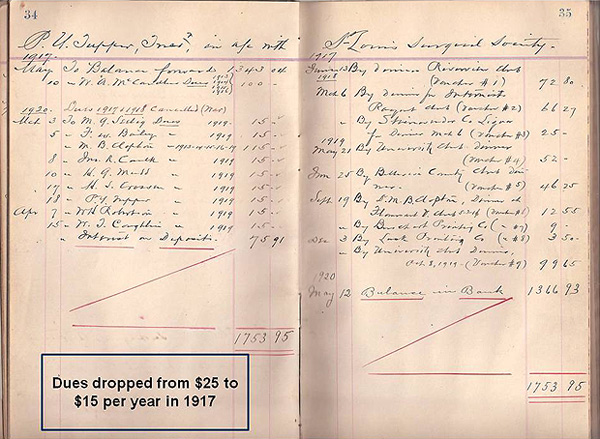 34
P. Y. Tupper, Treas., in a/c with
1917
May To Balance forward 1343 04
10 " W. A. McCandless Dues 100 -
1920 Dues 1917 & 1918 Cancelled (War)
Mch 3 To M. G. Seelig Dues 1919 - 15 -
5 " F. W. Bailey " 1919 - 15 -
" M. B. Clopton " 115 -
8 " Jno. R. Caulk " 1919 15 -
10 " H. G. Mudd " 1919 15 -
17 " H. S. Crossen " 1919 15 -
18 " P. Y. Tupper " 1919 15 -
Apr 7 " W H Robertson " 1919 15 -
15 " W. T. Coughlin " 1919 15 -
" Interest on Deposits 75 91
1753 95
Dues dropped from $25 to
$15 per year in 1917
35
St Louis Surgical Society.
1917
13 By Dinner Riverview Club
1918
(Voucher # 1) 72 80
Mch 6 By Dinner for
Racquet Club (Voucher #2) 66 27
" By Co Cigars
for Dinner Mch 6 (Voucher #3) 25 -
1919
May 21 By University Club Dinner
(Voucher #4) 52 -
Jun 25 By County Club Din-
ner. (Voucher #5) 46 75
Sept 19 By M B Clopton, Dinner at
12 55
" By Printing Co (" #7) 9 -
Dec 3 By Printing Co (" #8) 3 50
" By University Club Dinner,
Oct 3, 1919 - (Voucher #9) 99 65
1920
May 12 Balance in Bank 1366 93
1753 95